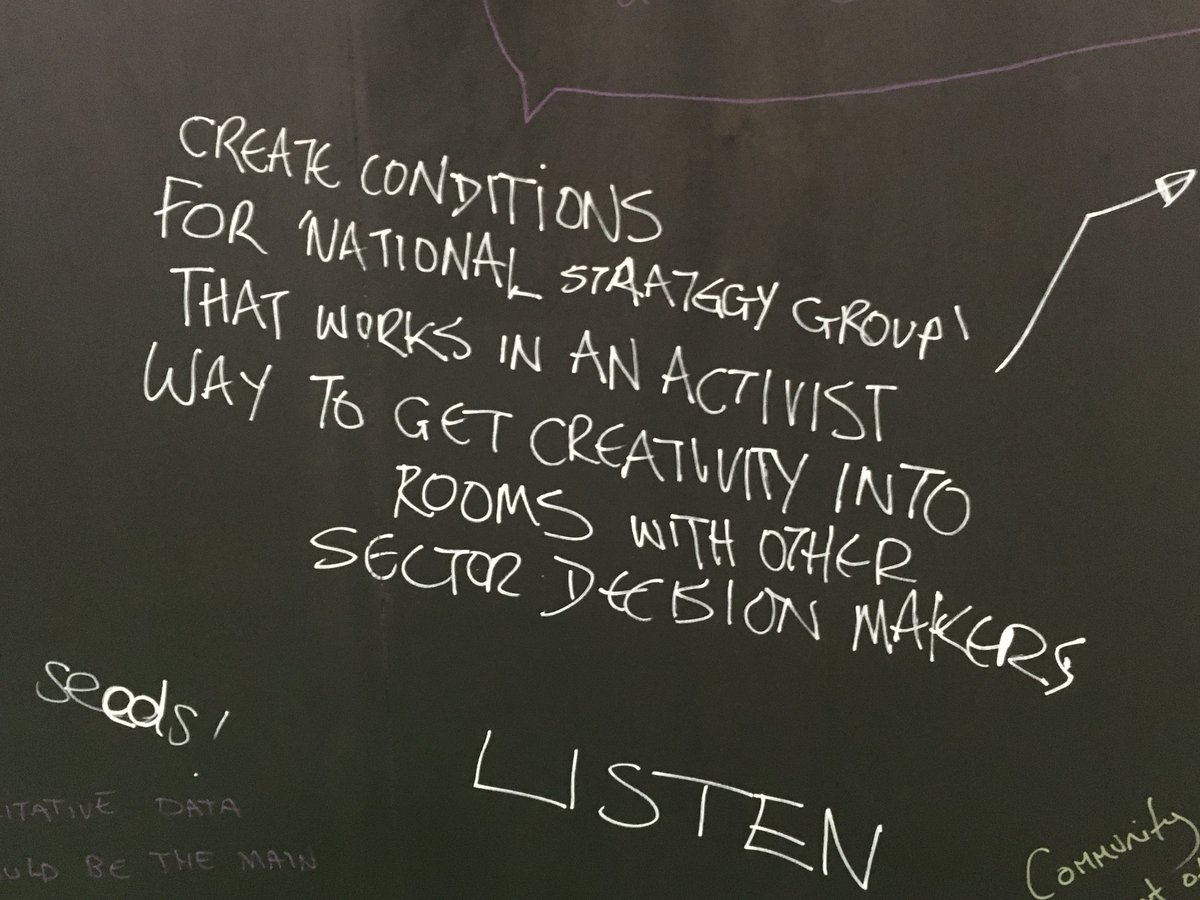 CREATE CONDITIONS
FOR 'NATIONAL STRATEGY GROUP'
THAT WORKS IN AN ACTIVIST
WAY TO GET CREATIVITY INTO
ROOMS WITH OTHER
SECTOR DECISION MAKERS
seeds!
LISTEN
ITATIVE DATA
ULD BE THE MAIN
Community